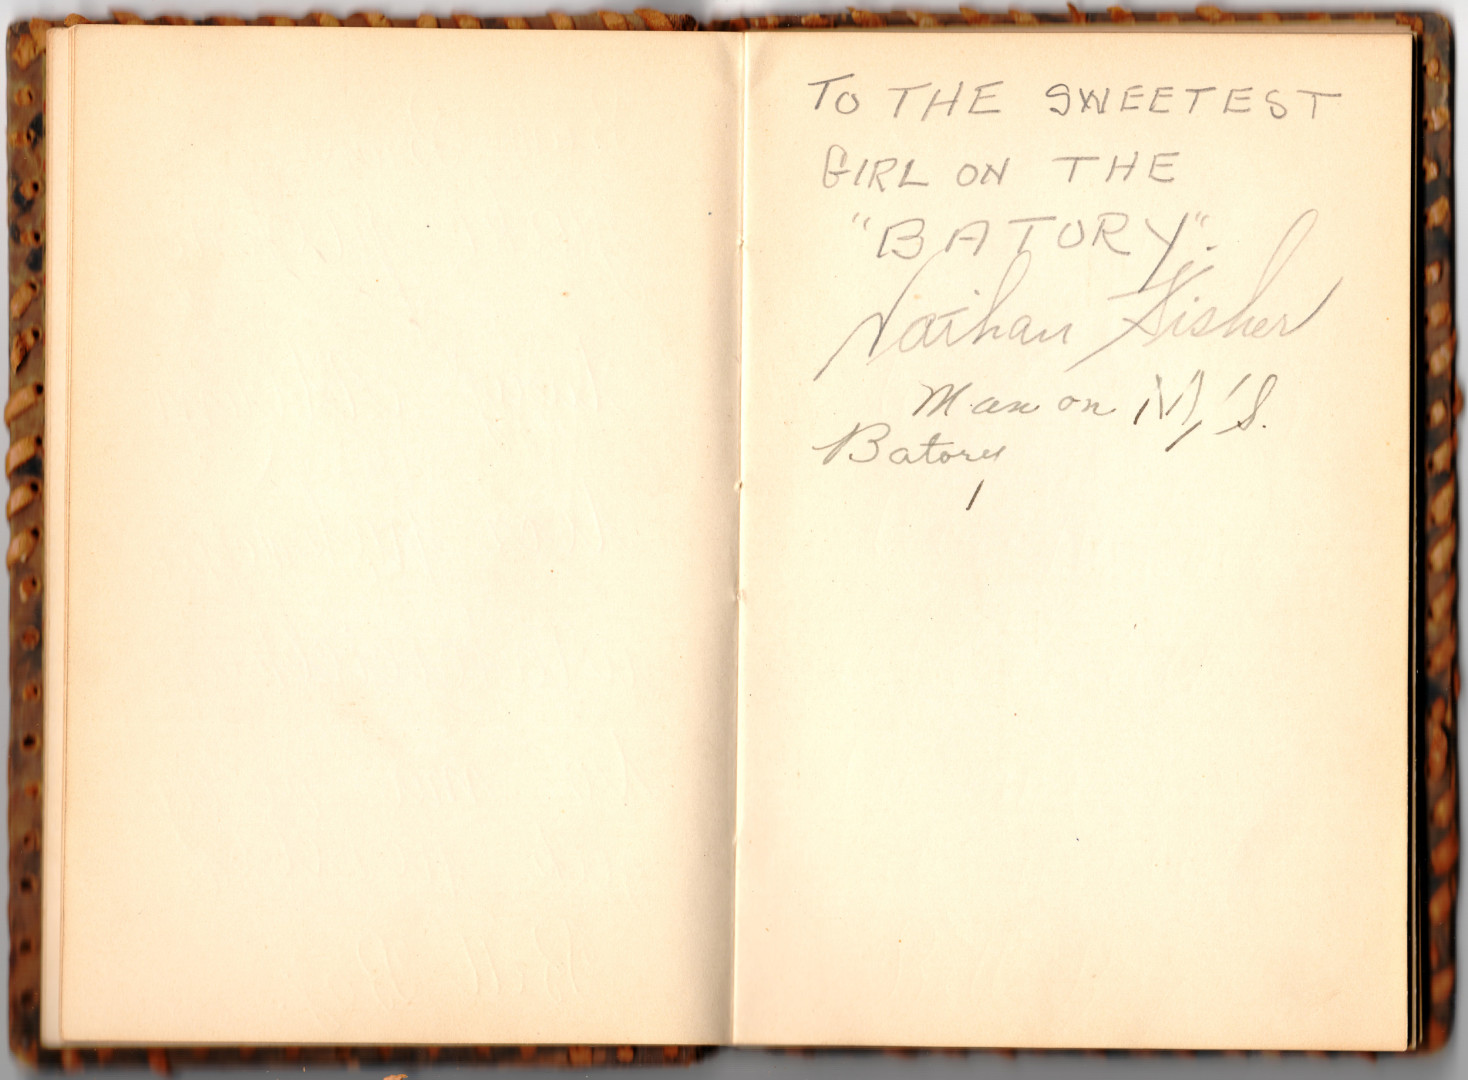 TO THE SWEETEST
GIRL ON THE
"BATORY".
Nathan Fisher
Man on M/S.
Batory